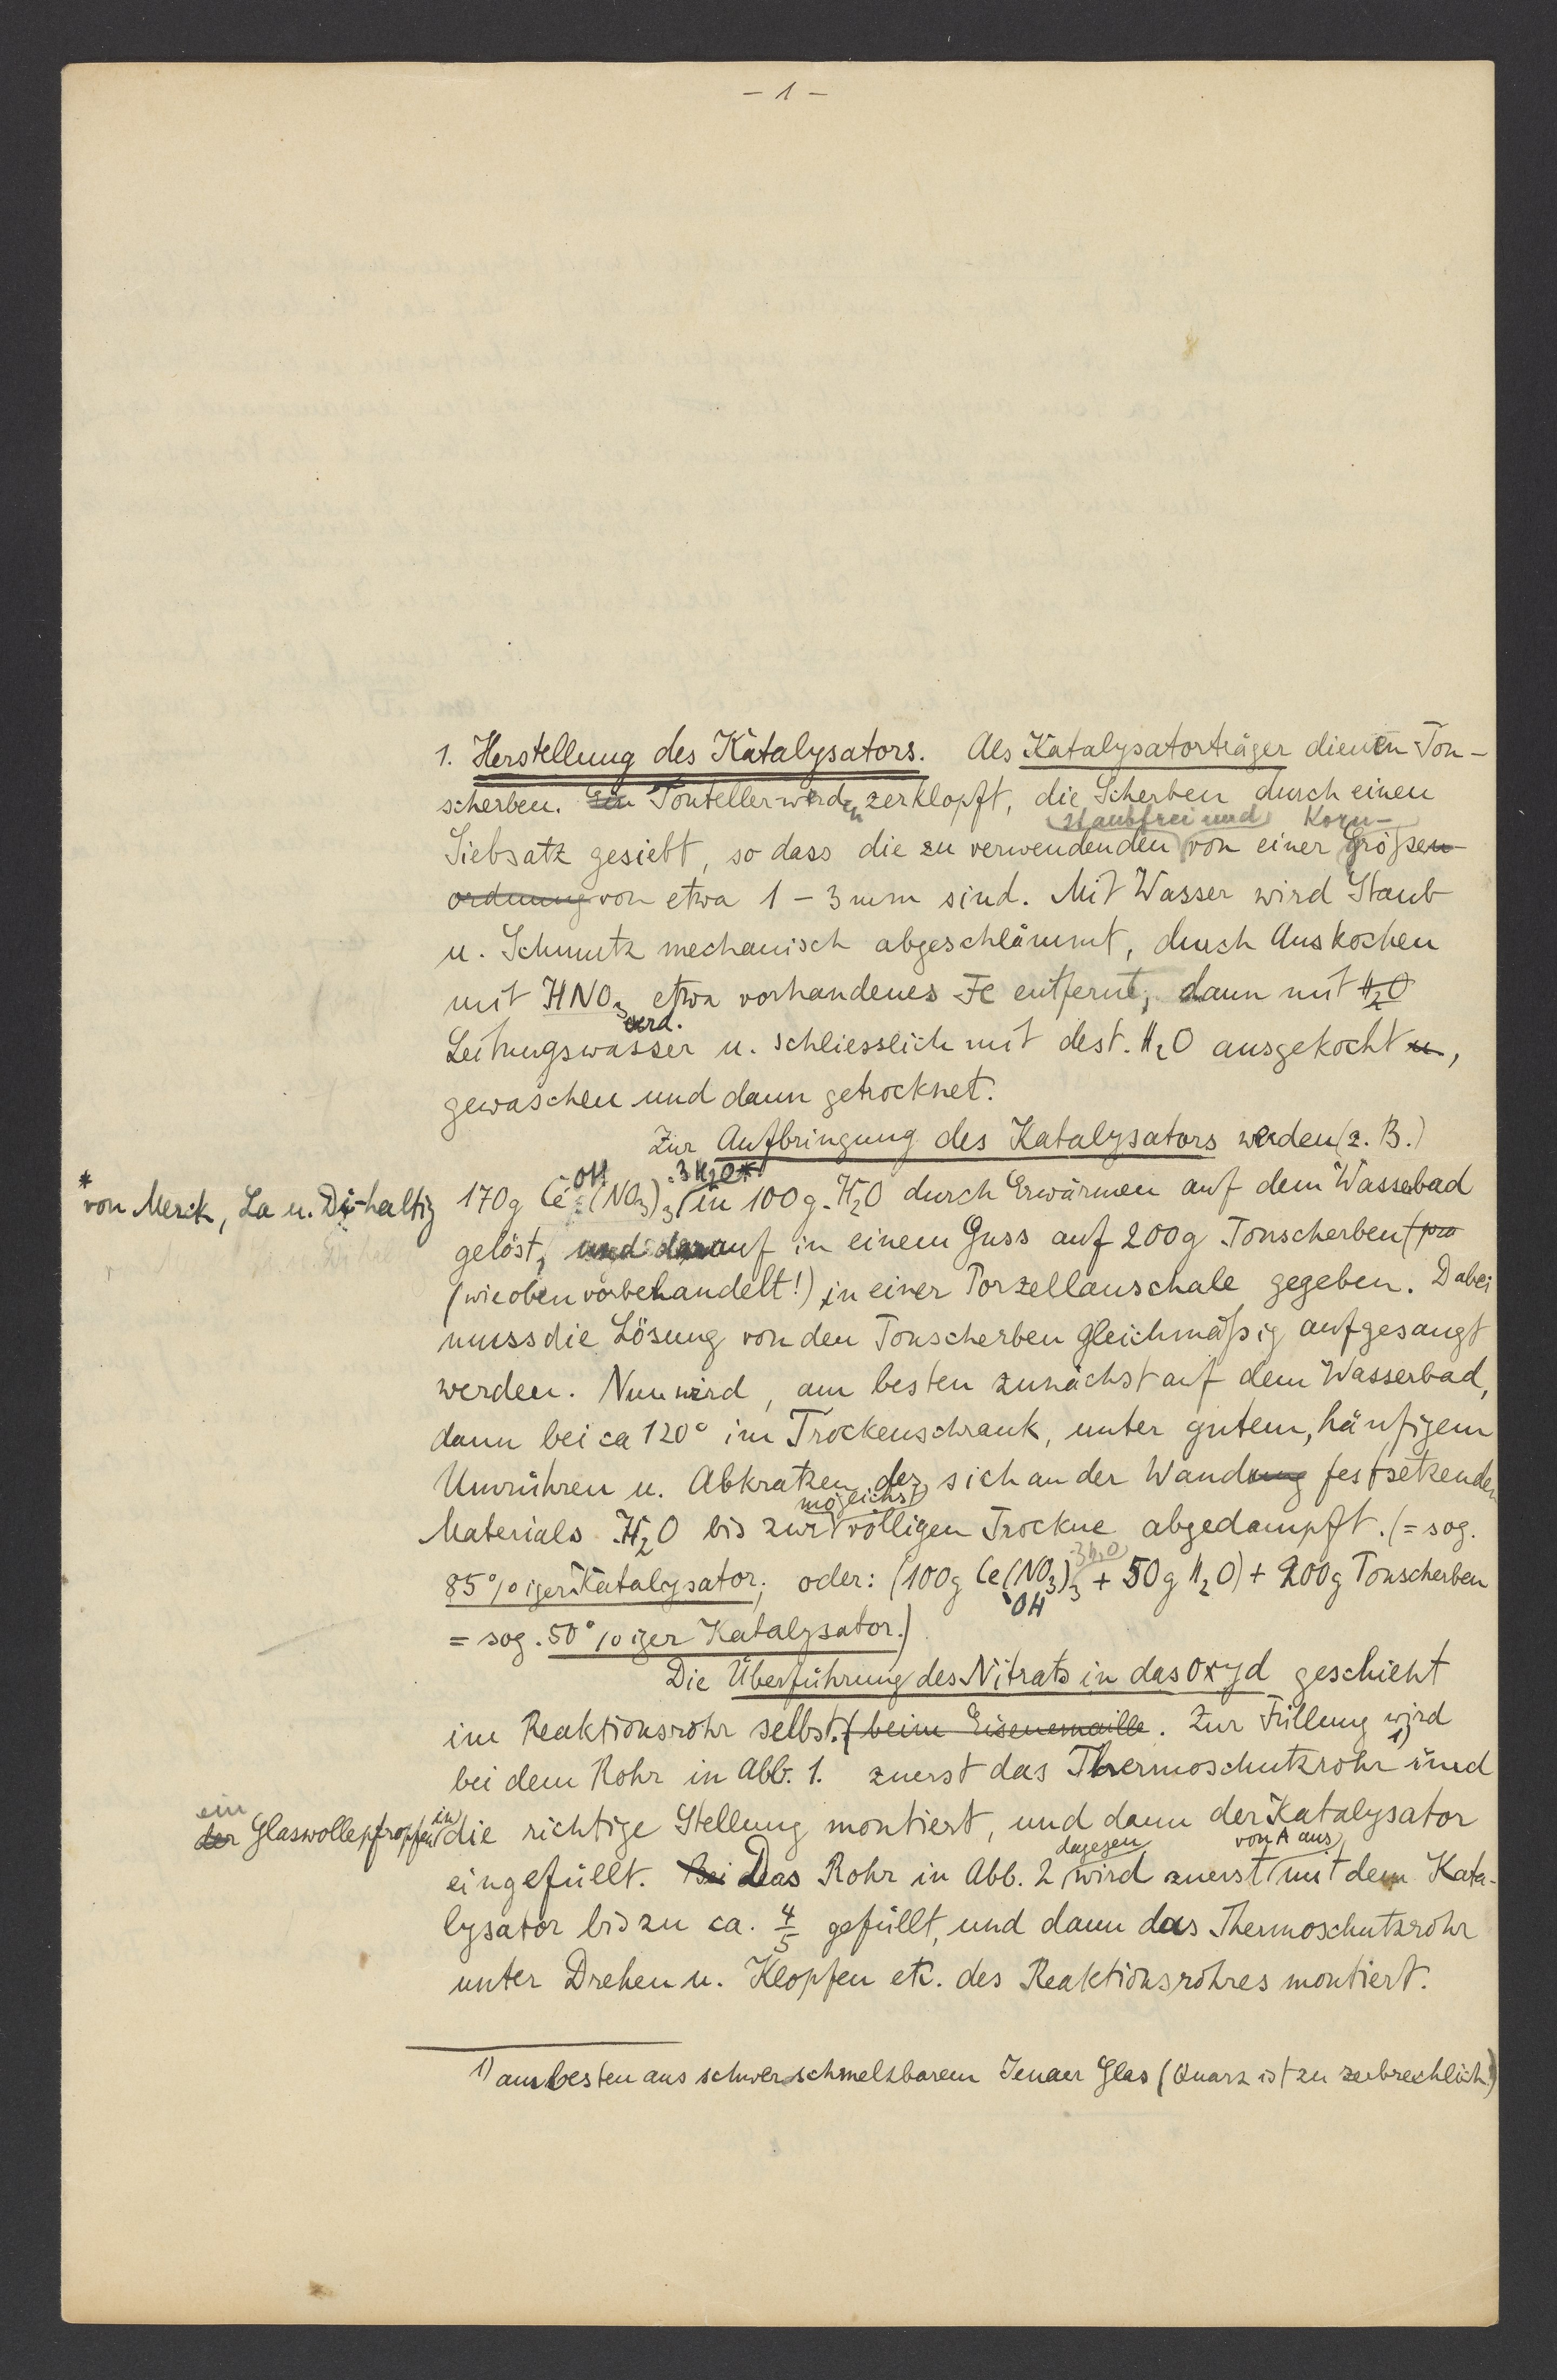 - 1 -
1. Herstellung des Katalysators. Als Katalysatorträger dienen Ton-
scherben. Ein Tonteller werden zerklopft, die Scherben durch einen
staubfrei und Korn-
Siebsatz gesiebt, so dass die zu verwendenden von einer Größen-
ordnung von etwa 1 - 3 mm sind. Mit Wasser wird Staub
u. Schmutz mechanisch abgeschlämmt, durch Auskochen
mit HNO3 etwa vorhandenes Fe entfernt, dann mit H2O
verd.
Leitungswasser u. schliesslich mit dest. H2O ausgekocht u,
gewaschen und dann getrocknet.
Zur Aufbringung des Katalysators werden (z. B.)
OH .3H2O*
* von Merck, La u. Di-haltig
170g Ce (NO3)3 in 100g H2O durch Erwärmen auf dem Wasserbad
gelöst, und darauf in einem Guss auf 200g Tonscherben
(wie oben vorbehandelt!) in einer Porzellanschale gegeben. Dabei
muss die Lösung von den Tonscherben gleichmäßig aufgesaugt
werden. Nun wird, am besten zunächst auf dem Wasserbad,
dann bei ca 120° im Trockenschrank, unter gutem, häufigem
Umrühren u. Abkratzen des sich an der Wandung festsetzenden
möglichst
Materials H2O bis zur völligen Trockne abgedampft. (= sog.
.3H2O
85%iger Katalysator; oder: (100g Ce(NO3)3 + 50g H2O) + 200g Tonscherben
OH
= sog. 50%iger Katalysator.)
Die Überführung des Nitrats in das Oxyd geschieht
im Reaktionsrohr selbst. (beim Eisenemaille. Zur Füllung wird
bei dem Rohr in Abb. 1. zuerst das Thermoschutzrohr 1) und
ein
der Glaswollepfropfen
in
die richtige Stellung montiert, und dann der Katalysator
dagegen von A aus
eingefüllt. Bei Das Rohr in Abb. 2 wird zuerst mit dem Kata-
lysator bis zu ca. 4/5 gefüllt, und dann das Thermoschutzrohr
unter Drehen u. Klopfen etc. des Reaktionsrohres montiert.
1) am besten aus schwerschmelzbarem Jenaer Glas (Quarz ist zu zerbrechlich!)